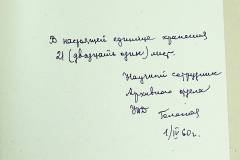 В настоящей единице хранения
21 (двадцать один) лист.
Научный сотрудник
Архивного отдела
1/IV 60 г.